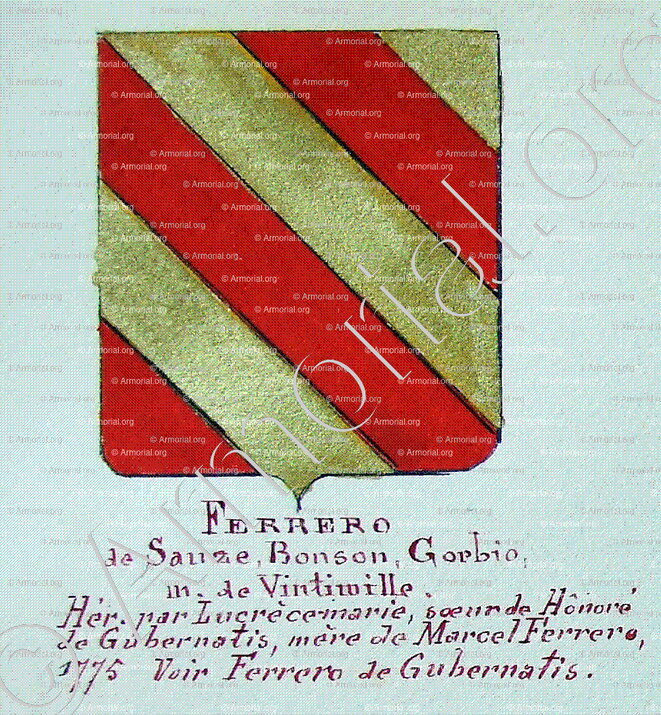 FERRERO
de Sauze, Bonson, Gorbio,
m. de Vintimille.
Hér. par Lucrècemarie, sœur de Hônoré
de Gubernatis, mère de Marcel Ferrero,
1775 Voir Ferrero de Gubernatis.
© Armorial.org